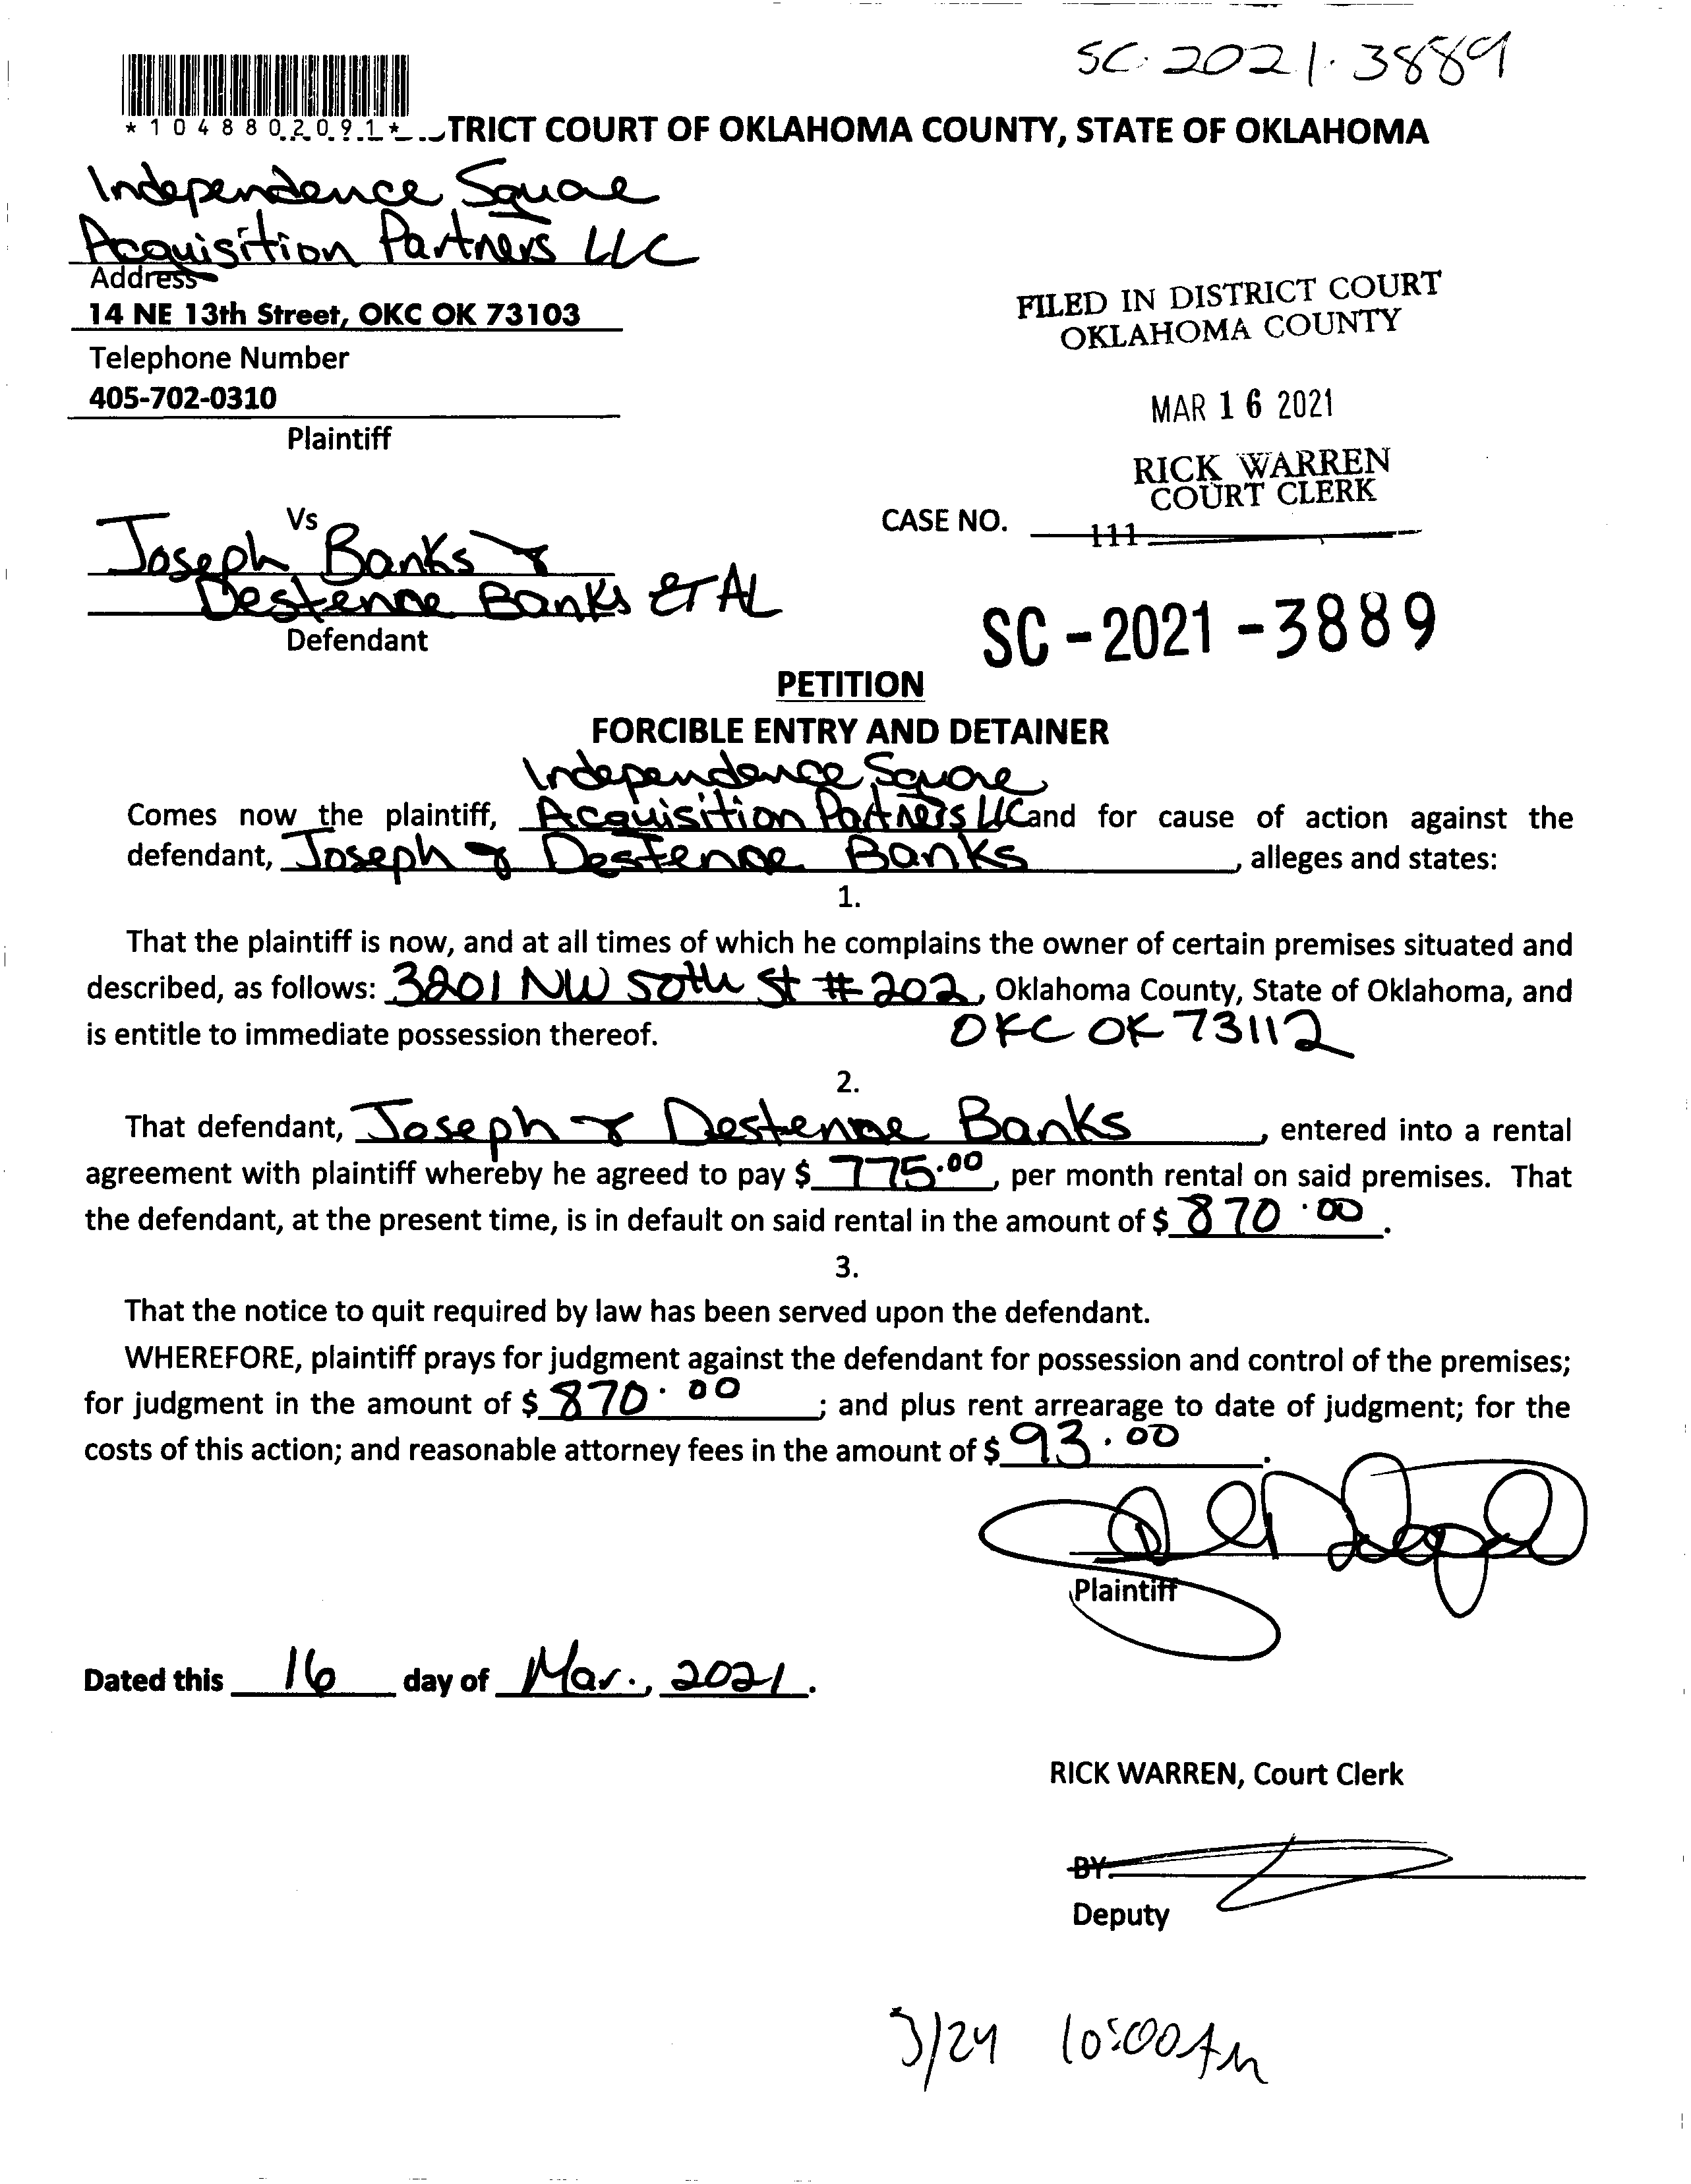 SC-2021-3889
*1048802091*
TRICT COURT OF OKLAHOMA COUNTY, STATE OF OKLAHOMA
Independence Square
Acquisition Partners LLC
Address
14 NE 13th Street, OKC OK 73103
Telephone Number
405-702-0310
Plaintiff
FILED IN DISTRICT COURT
OKLAHOMA COUNTY
MAR 16 2021
RICK WARREN
COURT CLERK
Vs
CASE NO.
111
Joseph Banks &
Destenee Banks ET AL
Defendant
SC-2021-3889
PETITION
FORCIBLE ENTRY AND DETAINER
Independence Square
Comes now the plaintiff, Acquisition Partners LLC and for cause of action against the
defendant, Joseph & Destenee Banks, alleges and states:
1.
That the plaintiff is now, and at all times of which he complains the owner of certain premises situated and
described, as follows: 3201 NW 50th St # 202, Oklahoma County, State of Oklahoma, and
is entitle to immediate possession thereof. OKC OK 73112
2.
That defendant, Joseph & Destenee Banks, entered into a rental
agreement with plaintiff whereby he agreed to pay $ 775.00, per month rental on said premises. That
the defendant, at the present time, is in default on said rental in the amount of $ 870.00.
3.
That the notice to quit required by law has been served upon the defendant.
WHEREFORE, plaintiff prays for judgment against the defendant for possession and control of the premises;
for judgment in the amount of $ 870.00; and plus rent arrearage to date of judgment; for the
costs of this action; and reasonable attorney fees in the amount of $ 93.00.
Plaintiff
Dated this 16 day of Mar., 2021.
RICK WARREN, Court Clerk
BY
Deputy
3/24 10:00 Am